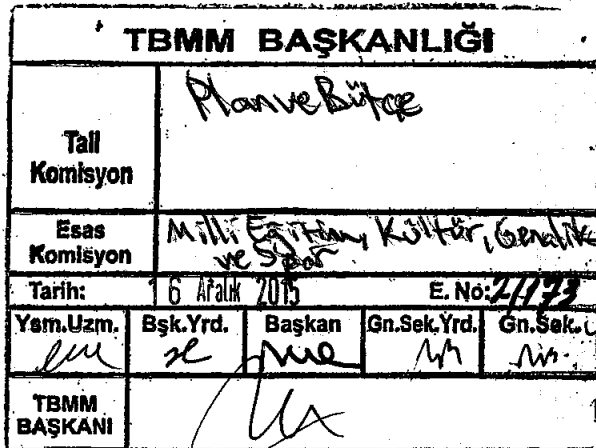 TBMM BAŞKANLIĞI
Tali
Komisyon
Plan ve Bütçe
Esas
Komisyon
Milli Eğitim, Kültür, Gençlik
ve Spor
Tarih: 16 Aralık 2015 E. No: 2/173
Ysm.Uzm. Bşk.Yrd. Başkan Gn.Sek.Yrd. Gn.Sek.
TBMM
BAŞKANI